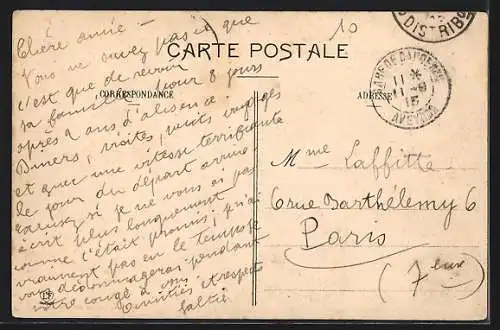 10
DISTRIB
CARTE POSTALE
CORRESPONDANCE
ADRESSE
11 *
11 - 9
15
AVEYRON
Chère amie -
Vous ne savez pas ce que
c'est que de revoir
sa famille pour 8 jours
après 2 ans d'absence.
Diners, visites, petits voyages
et avec une vitesse terrifiante
le jour du départ arrive
excusez si je ne vous ai pas
écrit plus longuement
comme c'était promis; je n'ai
vraiment pas eu le temps. Je
vous dédommagerai pendant
votre congé à vous
Amitiés et respects
Mme Laffitte
6 rue Barthélemy 6
Paris
(7 )